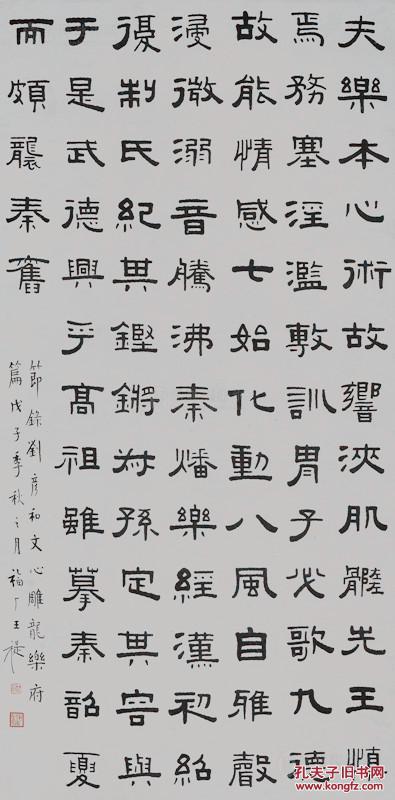 夫樂本心術故響浹肌髓先王慎
焉務塞淫濫敷訓胄子必歌九德
故能情感七始化動八風自雅聲
浸微溺音騰沸秦燔樂經漢初紹
復制氏紀其鏗鏘叔孫定其容與
于是武德興乎高祖雖摹秦韶夏
而頗襲秦舊
節錄劉彥和文心雕龍樂府
篇戊子季秋之月福厂王褆
孔夫子旧书网